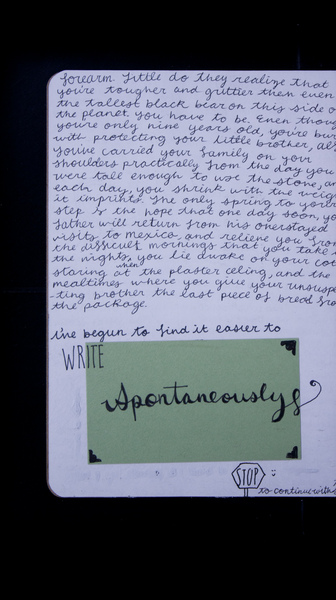 forearm. Little do they realize that
you're tougher and grittier then even
the tallest black bear on this side o
the planet. you have to be. Even thou
you're only nine years old, you're bur
with protecting your little brother, als
you've carried your family on your
shoulders practically from the day you
were tall enough to use the stone, an
each day, you shrink with the weig
it imprints. The only spring to your
step is the hope that one day soon, yo
father will return from his overstayed
visits to Mexico and relieve you from
the difficult mornings that you take
the nights, when you lie awake on your cot
staring at the plaster celing, and the
mealtimes where you give your unsusp
-ting brother the last piece of bread fro
the package.
I've begun to find it easier to
WRITE
Spontaneously
STOP
to continue with